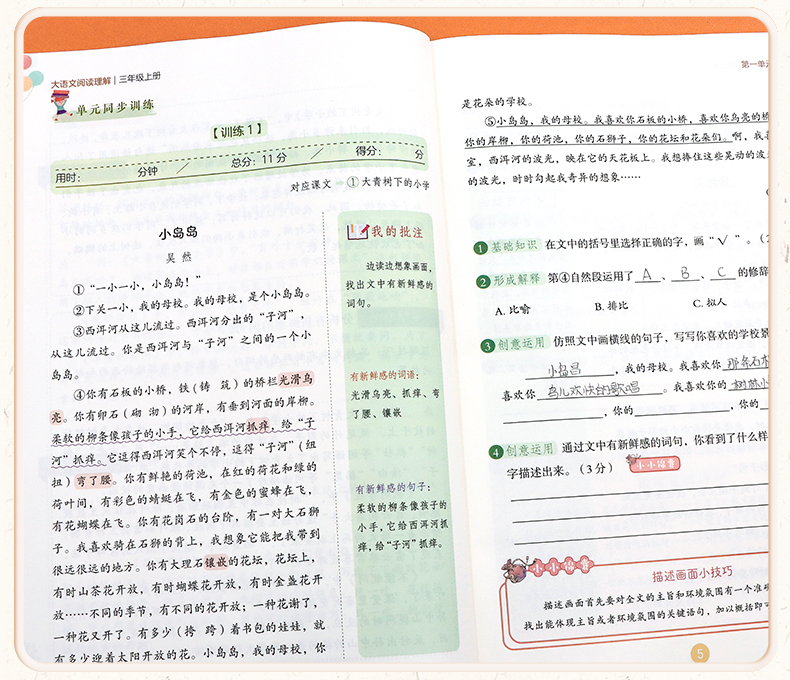 大语文阅读理解 | 三年级上册
单元同步训练
【训练1】
用时: 分钟 / 总分: 11分 / 得分: 分
对应课文 ①大青树下的小学
小岛岛
吴 然
①“一小一小，小岛岛！”
②下关一小，我的母校。我的母校，是个小岛岛。
③西洱河从这儿流过。西洱河分出的“子河”，
从这儿流过。你是西洱河与“子河”之间的一个小
岛岛。
④你有石板的小桥，铁（铸 筑）的桥栏光滑乌
亮。你有卵石（砌 沏）的河岸，有垂到河面的岸柳。
柔软的柳条像孩子的小手，它给西洱河抓痒，给“子
河”抓痒。它逗得西洱河笑个不停，逗得“子河”（纽
扭）弯了腰。你有鲜艳的荷池，在红的荷花和绿的
荷叶间，有彩色的蜻蜓在飞，有金色的蜜蜂在飞，
有花蝴蝶在飞。你有花岗石的台阶，有一对大石狮
子。我喜欢骑在石狮的背上，我想象它能把我带到
很远很远的地方。你有大理石镶嵌的花坛，花坛上，
有时山茶花开放，有时蝴蝶花开放，有时金盏花开
放……不同的季节，有不同的花开放；一种花谢了，
一种花又开了。有多少（挎 跨）着书包的娃娃，就
有多少迎着太阳开放的花。小岛岛，我的母校，你
我的批注
边读边想象画面，
找出文中有新鲜感的
词句。
有新鲜感的词语：
光滑乌亮、抓痒、弯
了腰、镶嵌
有新鲜感的句子：
柔软的柳条像孩子的
小手，它给西洱河抓
痒，给“子河”抓痒。
第一单元
是花朵的学校。
⑤小岛岛，我的母校。我喜欢你石板的小桥，喜欢你乌亮的桥
你的岸柳，你的荷池，你的石狮子，你的花坛和花朵们。啊，我
室，西洱河的波光，映在它的天花板上。我想捧住这些晃动的波
的波光，时时勾起我奇异的想象……
1 基础知识 在文中的括号里选择正确的字，画“√”。（2
2 形成解释 第④自然段运用了 A 、 B 、 C 的修辞
A. 比喻 B. 排比 C. 拟人
3 创意运用 仿照文中画横线的句子，写写你喜欢的学校景
，我的母校。我喜欢你
喜欢你 鸟儿欢快的歌唱 。我喜欢你的
，你的 ，你的
4 创意运用 通过文中有新鲜感的词句，你看到了什么样
字描述出来。（3分） 小小锦囊
小小锦囊
描述画面小技巧
描述画面首先要对全文的主旨和环境氛围有一个准确
找出能体现主旨或者环境氛围的关键语句，加以概括即可
5